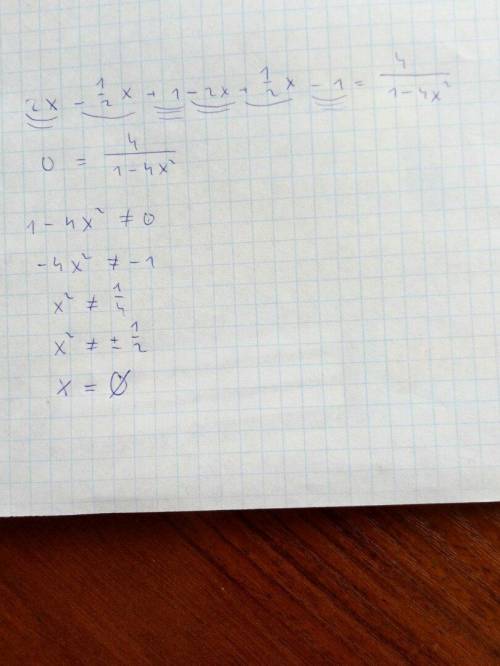 2x - 1/2 x + 1 - 2x + 1/2 x - 1 = 4/(1-4x²)
0 = 4/(1-4x²)
1 - 4x² ≠ 0
-4x² ≠ -1
x² ≠ 1/4
x² ≠ ± 1/2
x = ∅